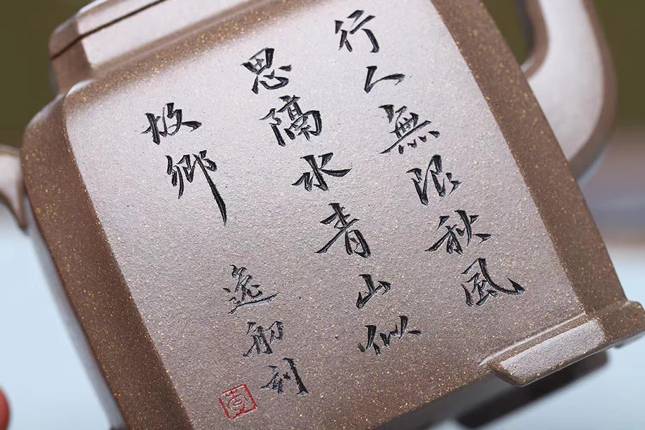 行人無限秋風
思隔水青山似
故鄉
逸舟刻